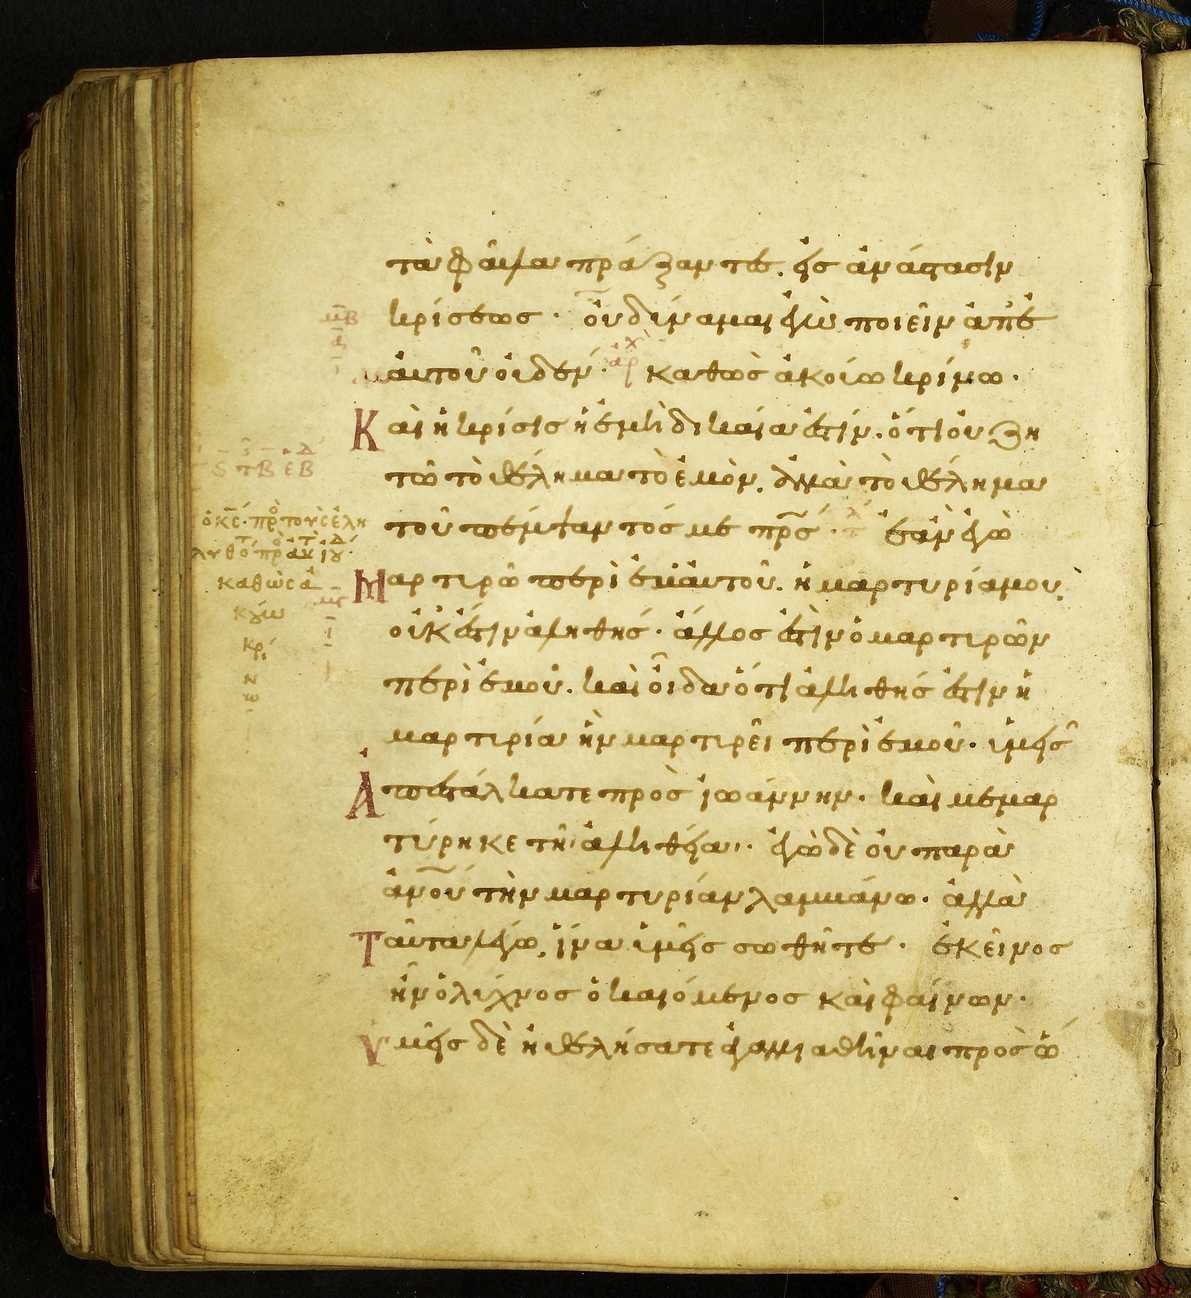 τὰ φαῦλα πράξαντες, εἰς ἀνάστασιν
κρίσεως · οὐ δύναμαι ἐγὼ ποιεῖν ἀπ' ἐ
μαυτοῦ οὐδέν · ἀρχ καθὼς ἀκούω κρίνω ·
Καὶ ἡ κρίσις ἡ ἐμὴ δικαία ἐστίν · ὅτι οὐ ζη
τῶ τὸ θέλημα τὸ ἐμὸν, ἀλλὰ τὸ θέλημα
τοῦ πέμψαντός με πρς · ἐὰν ἐγὼ
Μαρτυρῶ περὶ ἐμαυτοῦ · ἡ μαρτυρία μου,
οὐκ ἔστιν ἀληθής · ἄλλος ἐστὶν ὁ μαρτυρῶν
περὶ ἐμοῦ · καὶ οἶδα ὅτι ἀληθής ἐστιν ἡ
μαρτυρία ἣν μαρτυρεῖ περὶ ἐμοῦ · ὑμεῖς
Ἀπεστάλκατε πρὸς ἰωάννην · καὶ μεμαρ
τύρηκε τῆι ἀληθείαι · ἐγὼ δὲ οὐ παρὰ
ἀνου τὴν μαρτυρίαν λαμβάνω · ἀλλὰ
Ταῦτα λέγω, ἵνα ὑμεῖς σωθῆτε · ἐκεῖνος
ἦν ὁ λύχνος ὁ καιόμενος καὶ φαίνων ·
Ὑμεῖς δὲ ἠθελήσατε ἀγαλλιαθῆναι πρὸς ὥ
μβ
ὁ κς · πρ τοὺς ἐλη
λυθό πρ ἰου
καθὼς ἀ
κούω
κρί
ν
ω